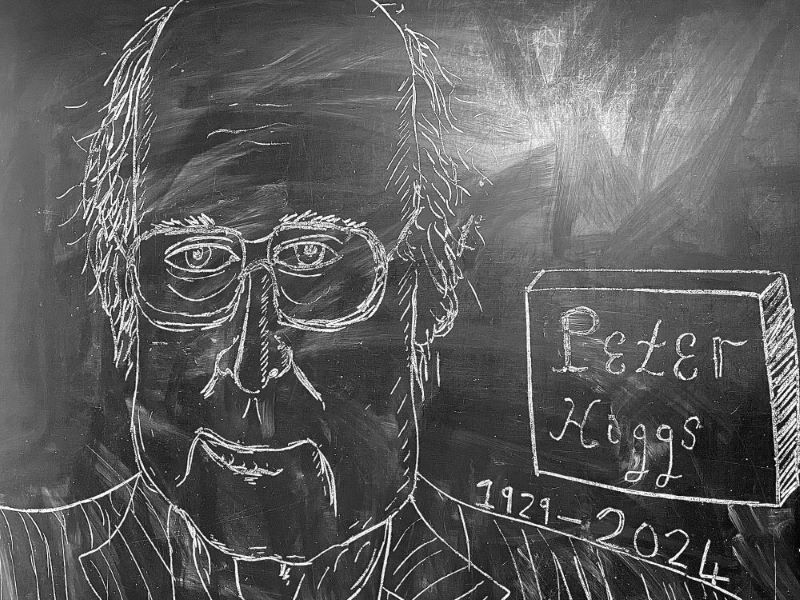 Peter
Higgs
1929-2024